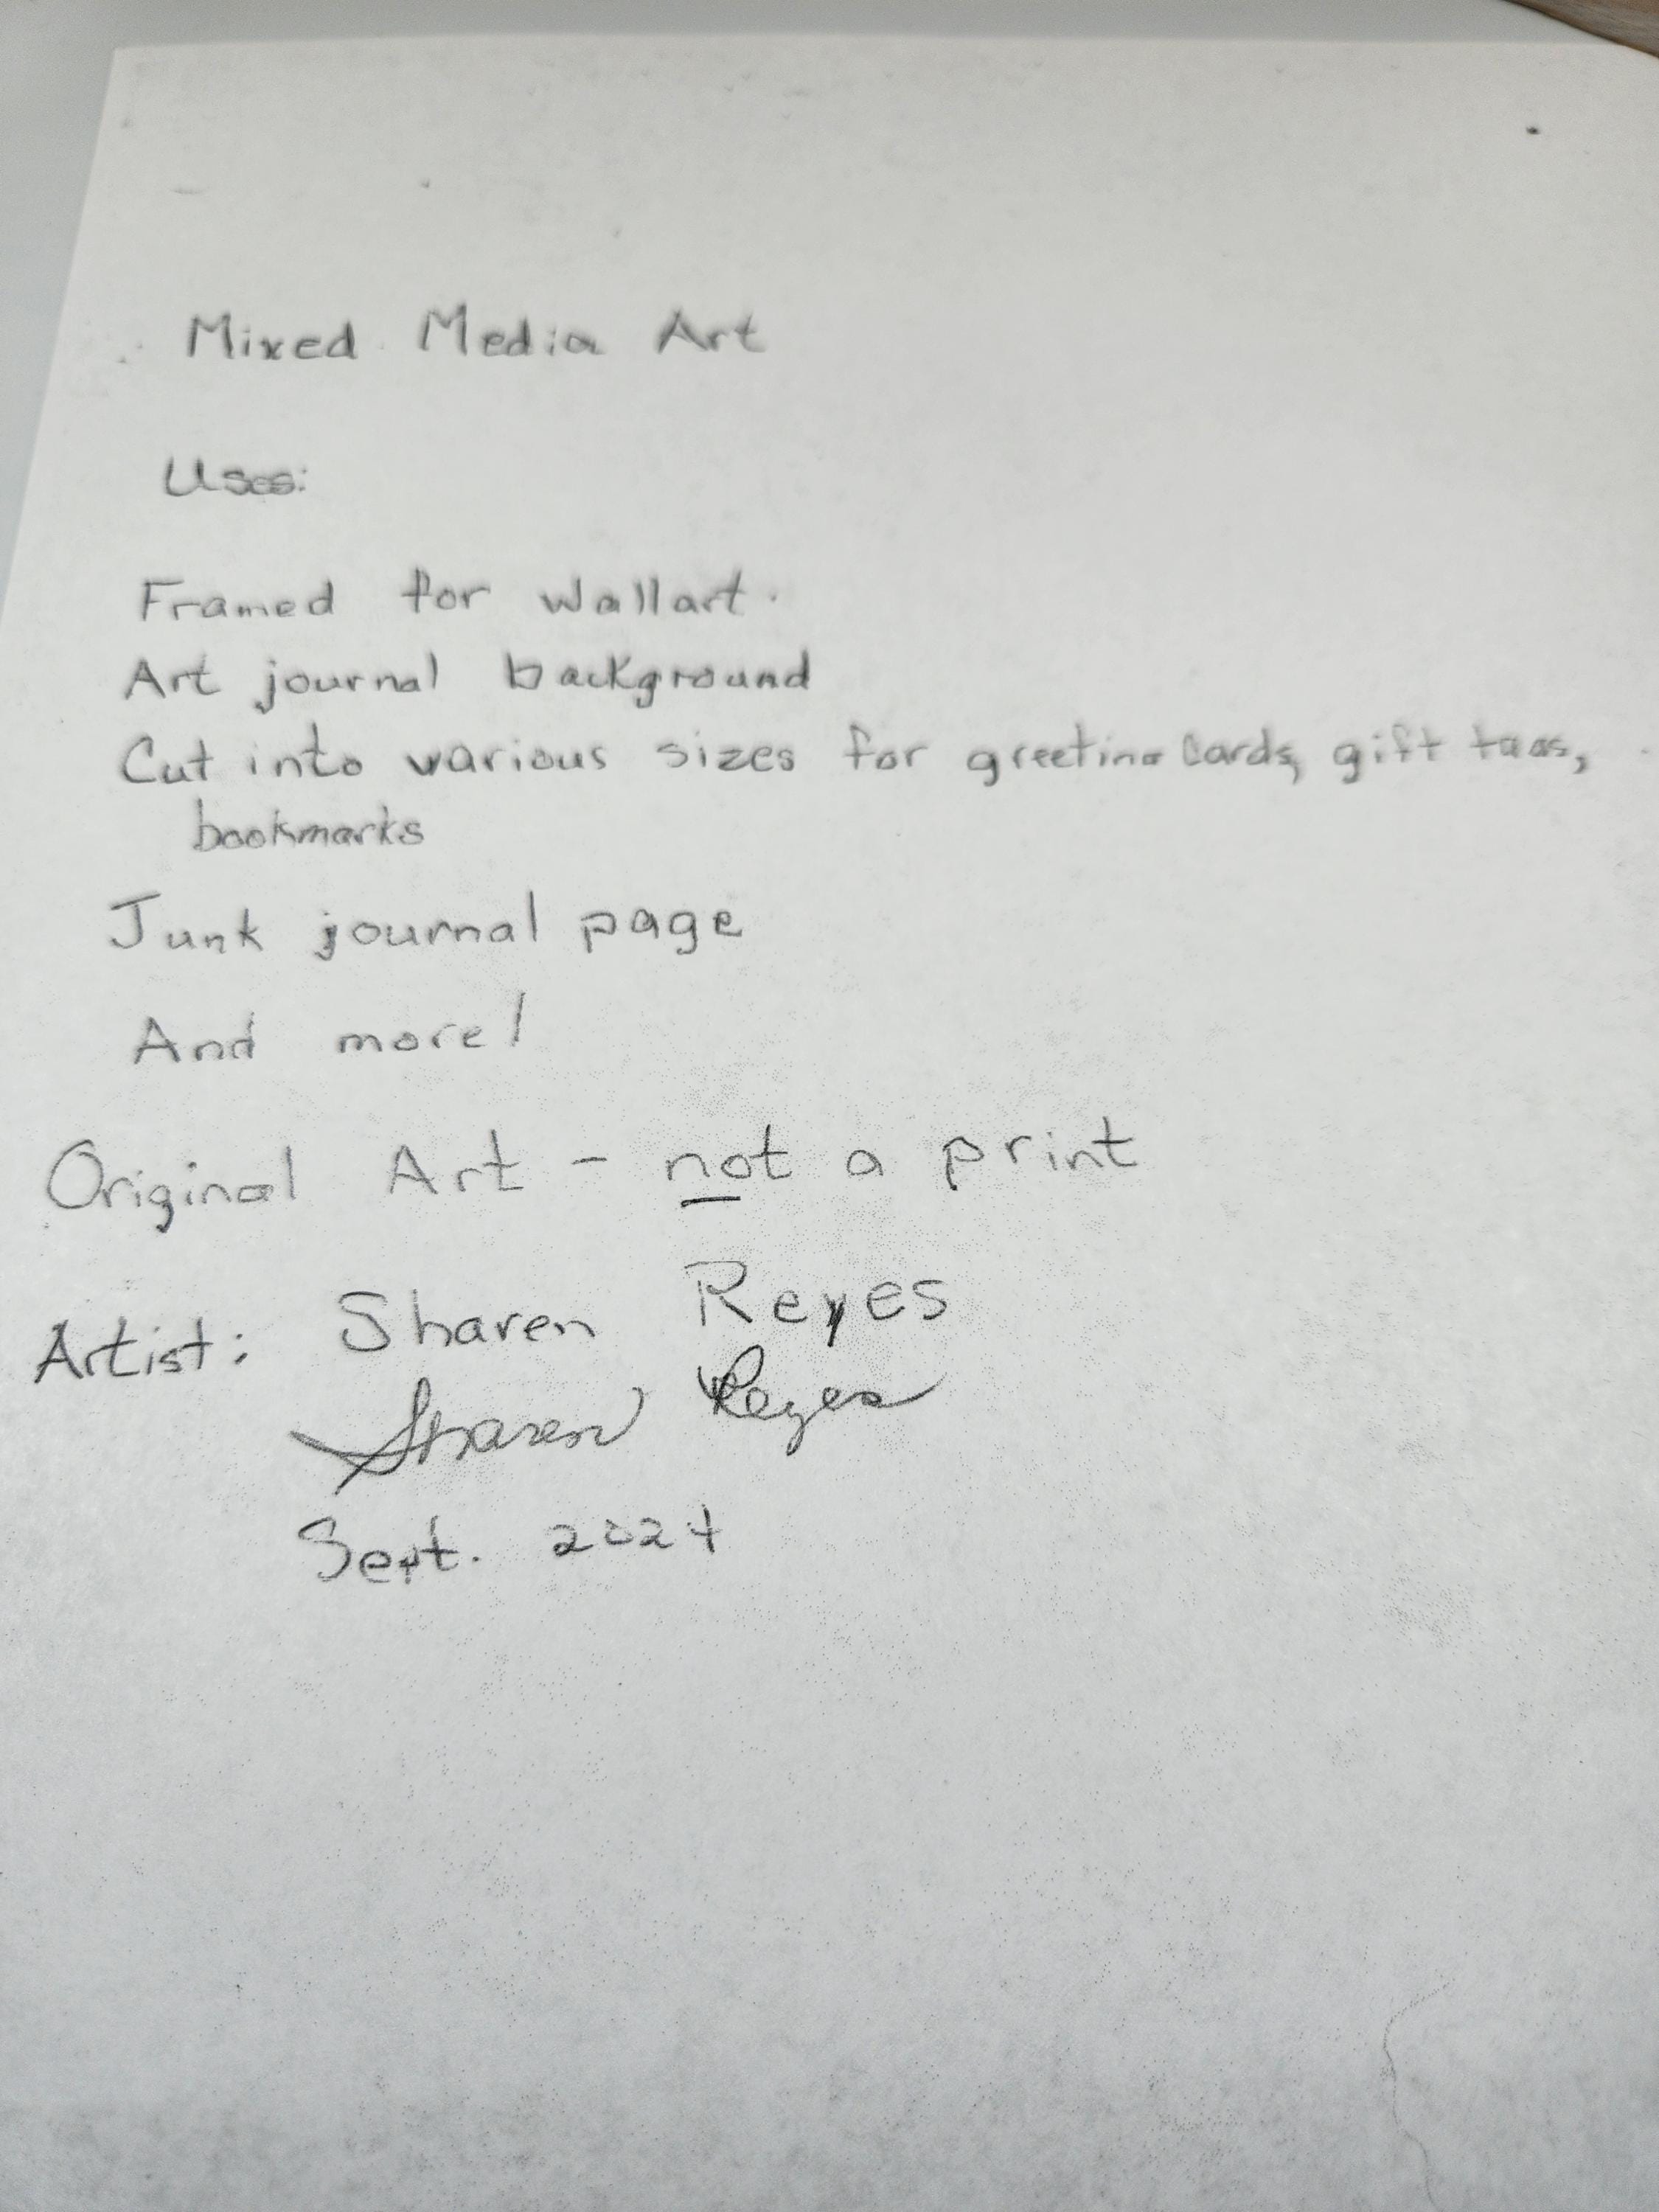 Mixed Media Art
Uses:
Framed for wallart.
Art journal background
Cut into various sizes for greeting cards, gift tags,
bookmarks
Junk journal page
And more!
Original Art - not a print
Artist: Sharen Reyes
Sharen Reyes
Sept. 2024